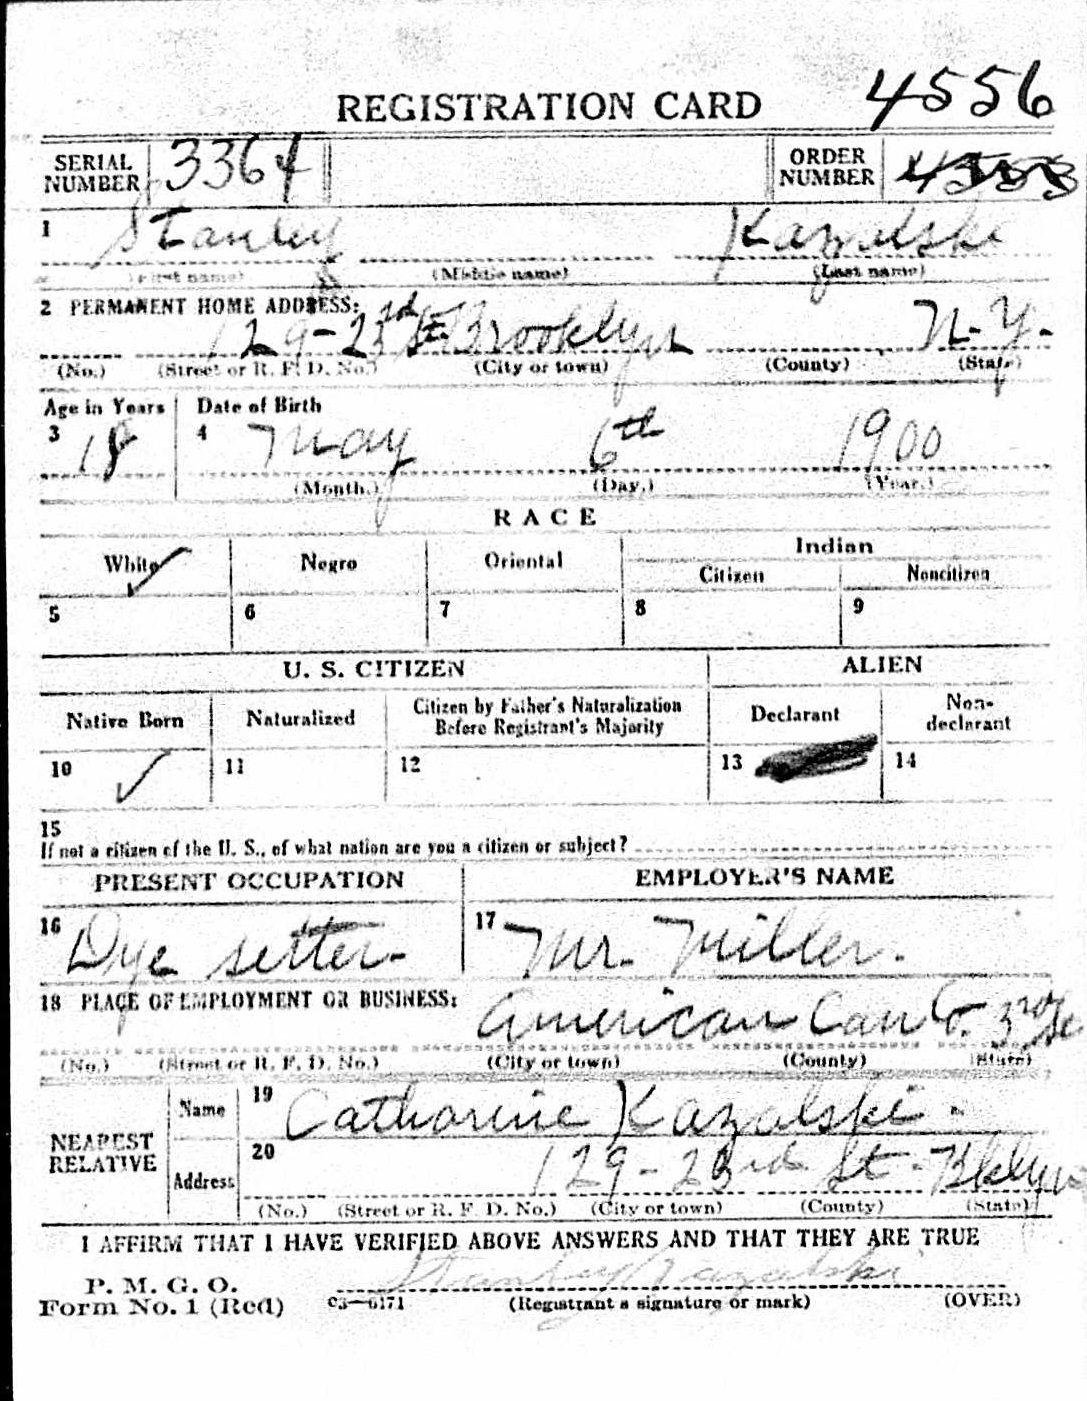 REGISTRATION CARD 4556
SERIAL NUMBER 3364 ORDER NUMBER
1 Stanley Kazalski
(First name) (Middle name) (Last name)
2 PERMANENT HOME ADDRESS:
129-23rd St Brooklyn N.Y.
(No.) (Street or R. F. D. No.) (City or town) (County) (State)
Age in Years Date of Birth
3 18 4 May 6th 1900
(Month.) (Day.) (Year.)
RACE
White Negro Oriental Indian
Citizen Noncitizen
5 6 7 8 9
U. S. CITIZEN ALIEN
Native Born Naturalized Citizen by Father's Naturalization Before Registrant's Majority Declarant Non-declarant
10 11 12 13 14
15
If not a citizen of the U. S., of what nation are you a citizen or subject?
PRESENT OCCUPATION EMPLOYER'S NAME
16 Dye setter- 17 Mr. Miller.
18 PLACE OF EMPLOYMENT OR BUSINESS:
American Can Co. 3rd Ave
(No.) (Street or R. F. D. No.) (City or town) (County) (State)
NEAREST RELATIVE
Name 19 Catharine Kazalski.
Address 20 129-23rd St-Bklyn
(No.) (Street or R. F. D. No.) (City or town) (County) (State)
I AFFIRM THAT I HAVE VERIFIED ABOVE ANSWERS AND THAT THEY ARE TRUE
P. M. G. O.
Form No. 1 (Red) 03—6171 Stanley Kazalski
(Registrant's signature or mark) (OVER)